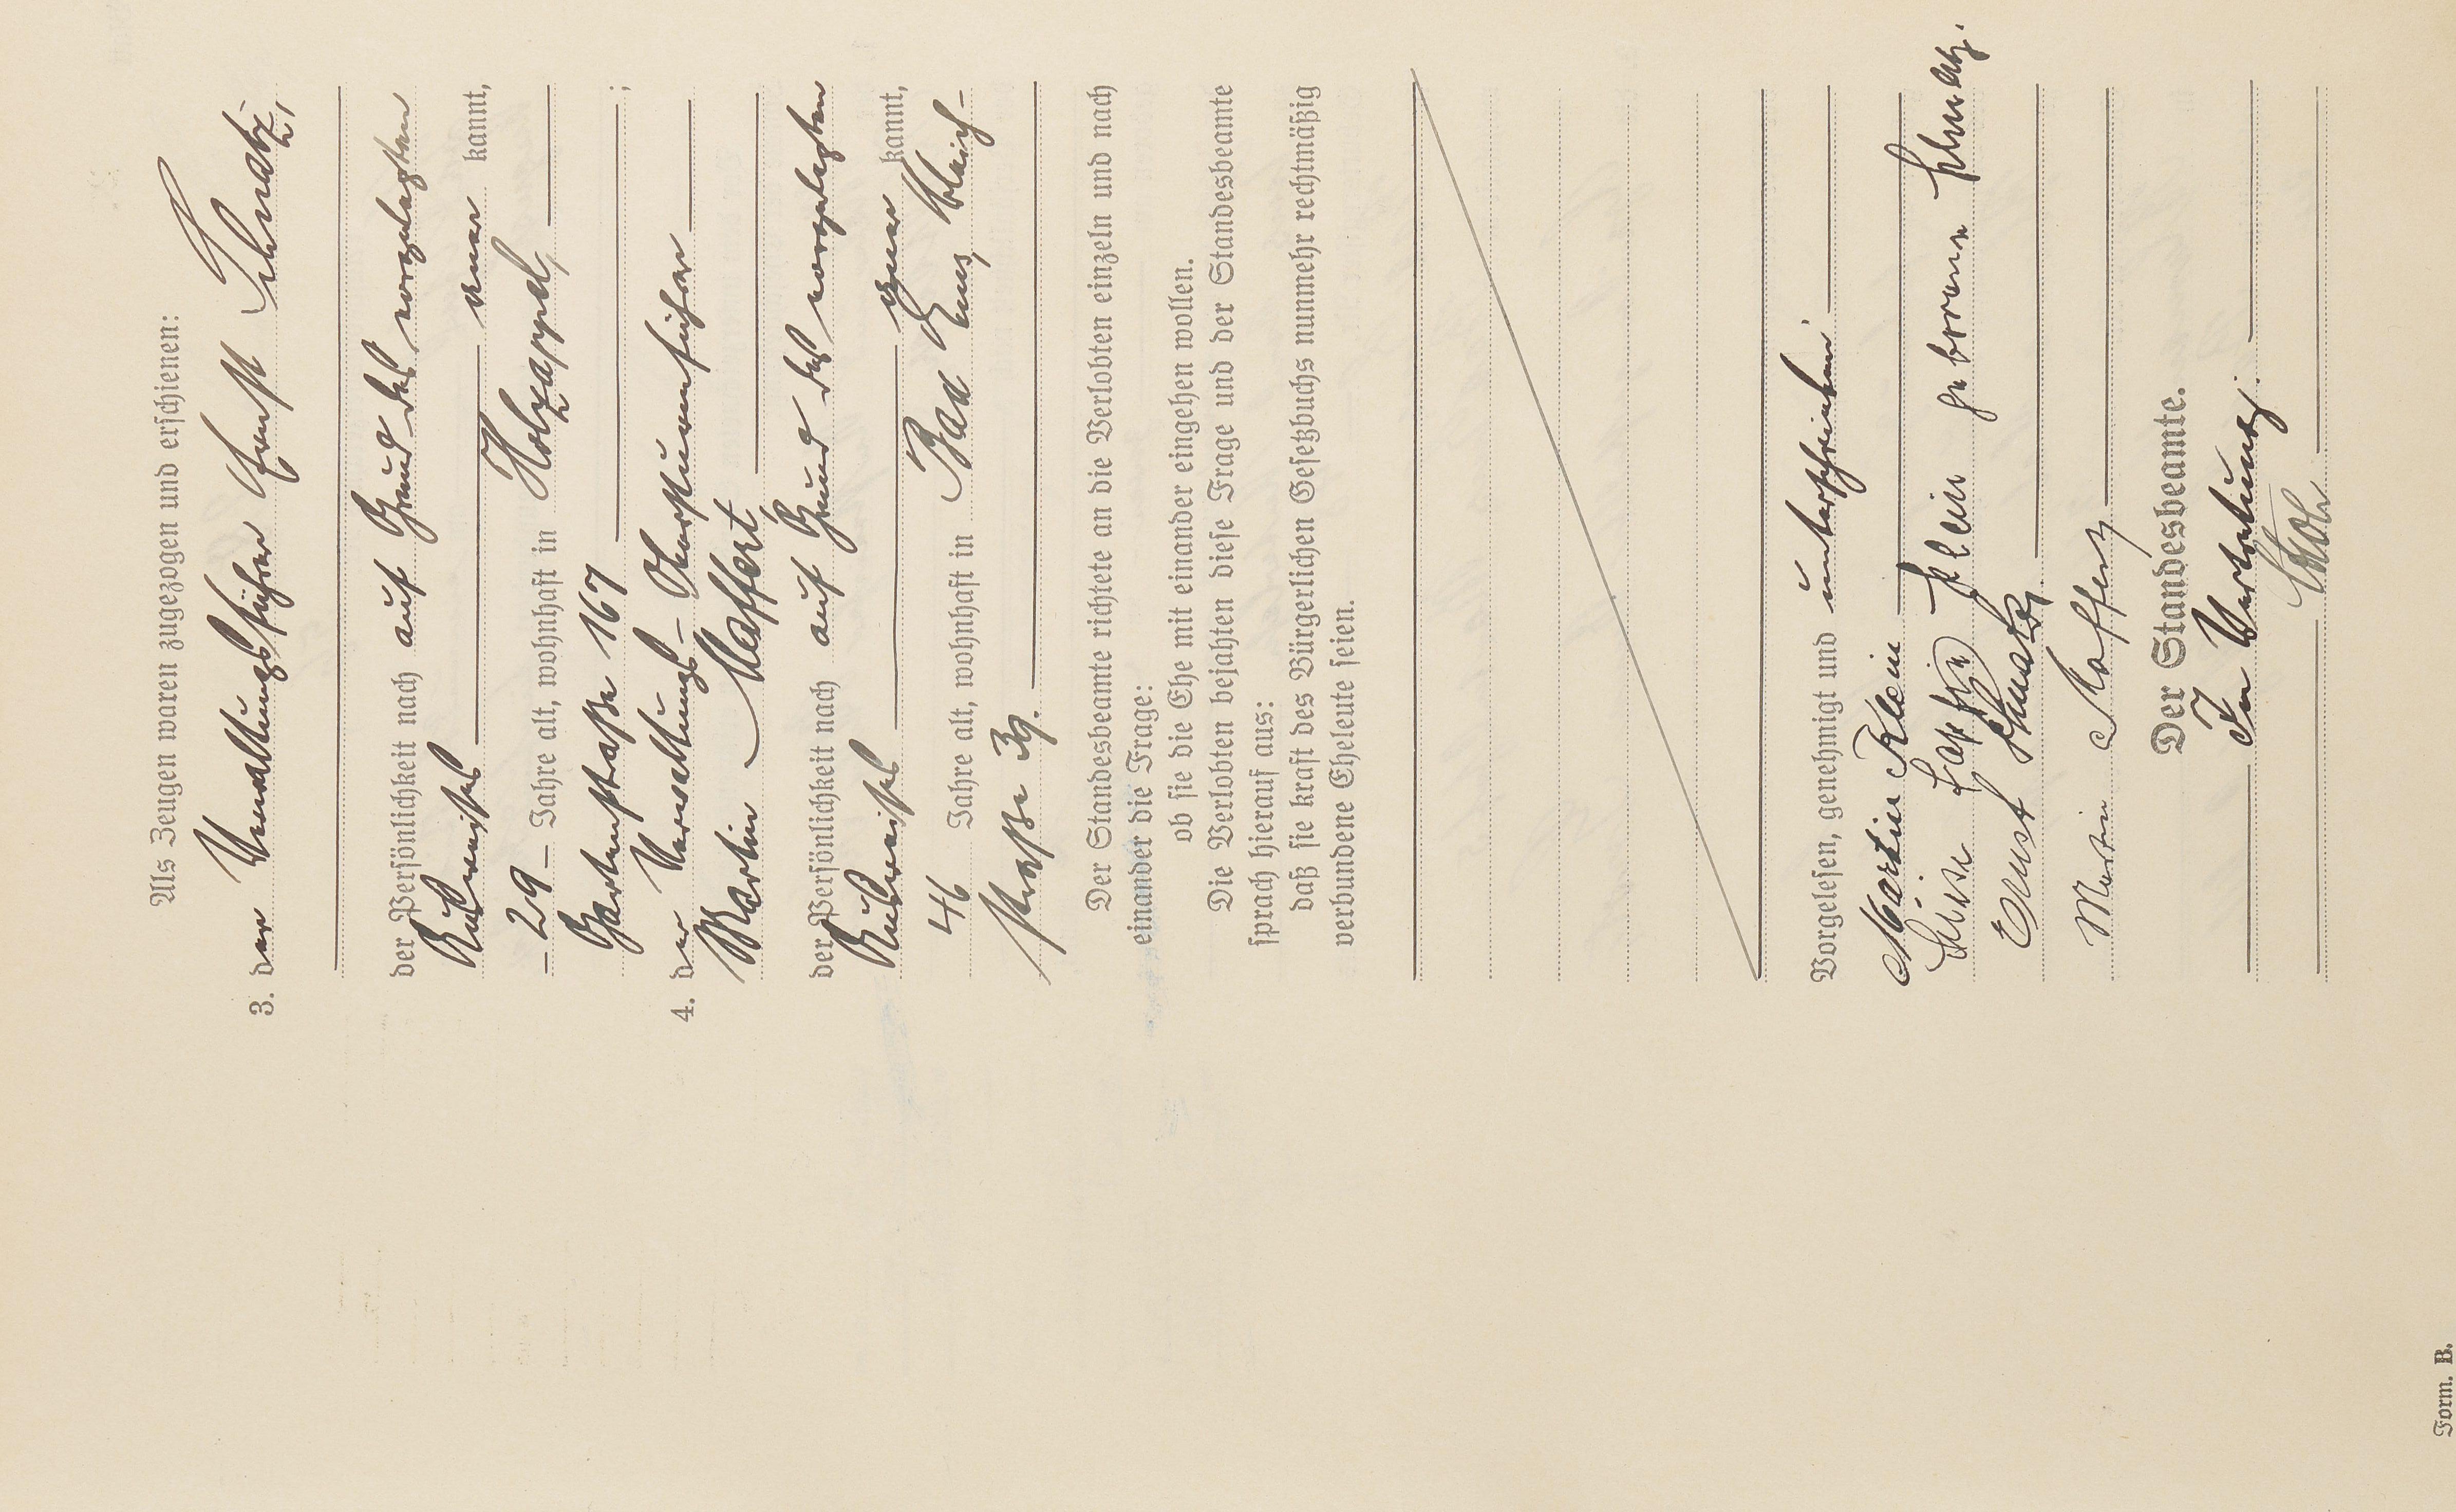 Als Zeugen waren zugezogen und erschienen:
3. der Verwaltungsführer Ernst Schmatz,
der Persönlichkeit nach auf Grund des vorgelegten
Ausweises aner kannt,
– 29 – Jahre alt, wohnhaft in Holzappel,
Gartenstraße 167 ;
4. der Verwaltungs-Obersturmführer
Martin Maffert
der Persönlichkeit nach auf Grund des vorgelegten
Ausweises aner kannt,
46 Jahre alt, wohnhaft in Bad Ems, Bleich-
straße 39.
Der Standesbeamte richtete an die Verlobten einzeln und nach
einander die Frage:
ob sie die Ehe mit einander eingehen wollen.
Die Verlobten bejahten diese Frage und der Standesbeamte
sprach hierauf aus:
daß sie kraft des Bürgerlichen Gesetzbuchs nunmehr rechtmäßig
verbundene Eheleute seien.
Vorgelesen, genehmigt und unterschrieben
Martin Klein
Luise Klein geborene Schmatz.
Ernst Schmatz.
Martin Maffert
Der Standesbeamte.
In Vertretung:
Form. B.